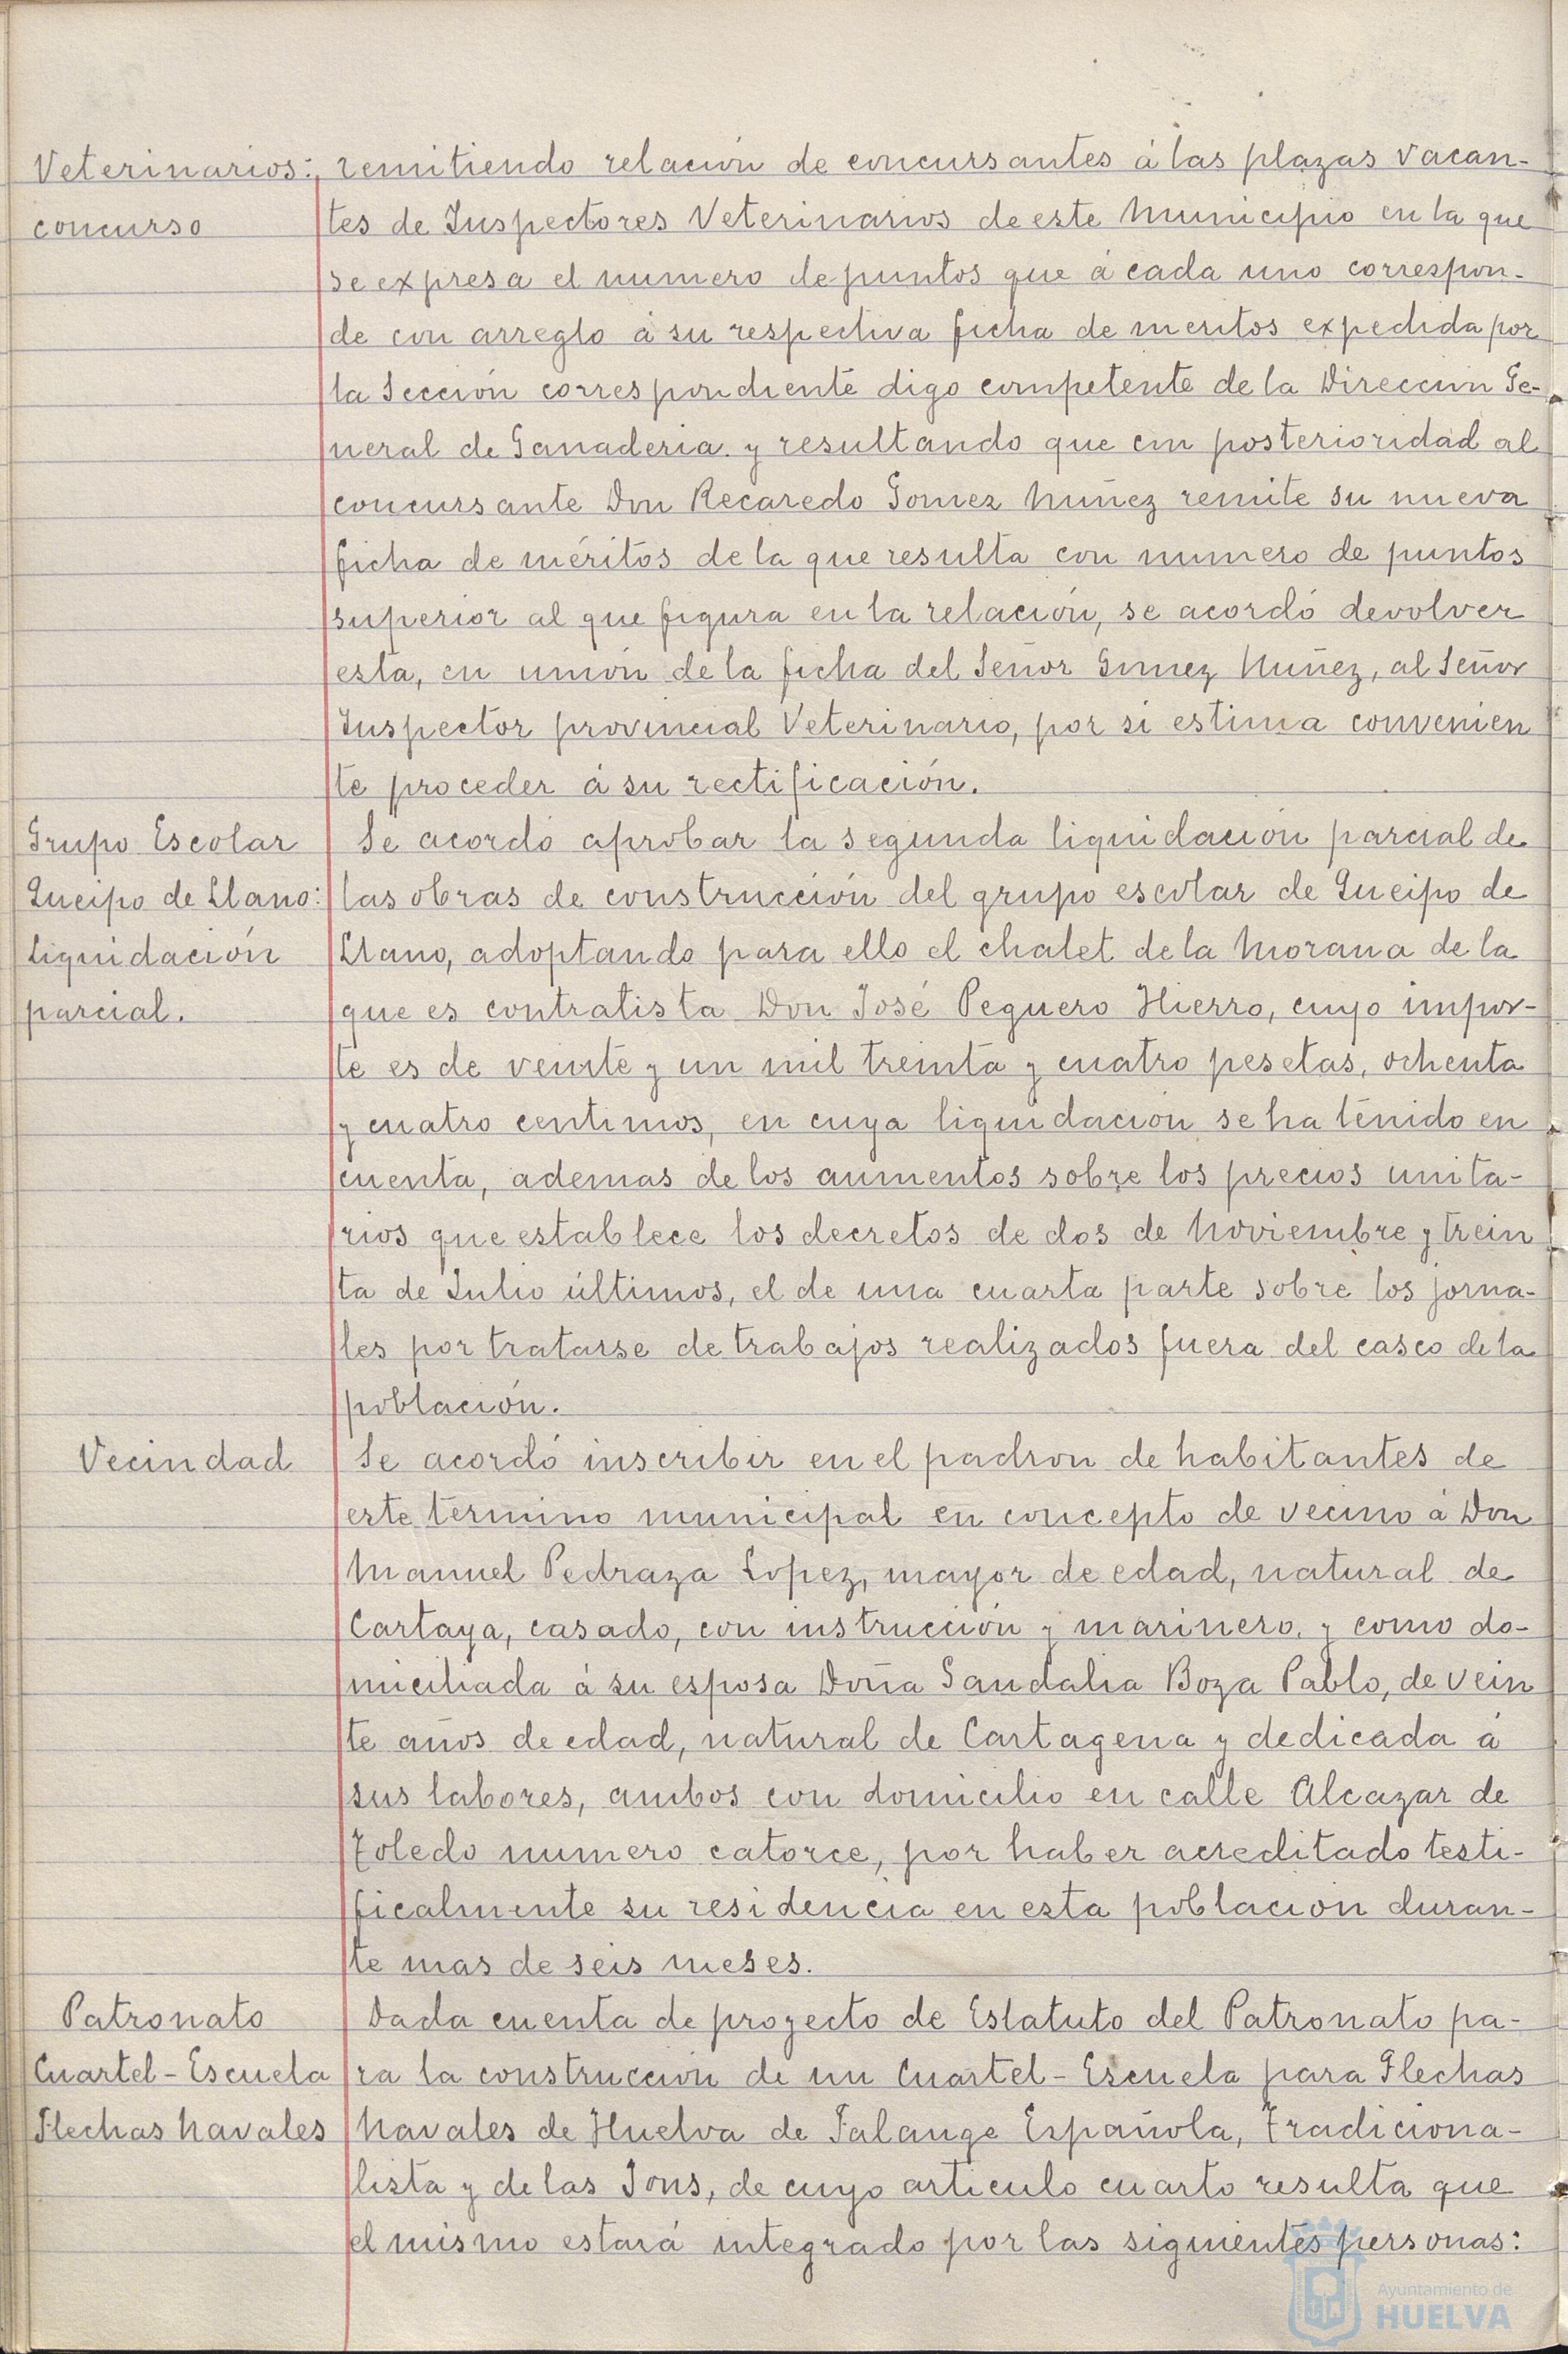 Veterinarios:
concurso
remitiendo relación de concursantes á las plazas vacan-
tes de Inspectores Veterinarios de este Municipio en la que
se expresa el numero de puntos que á cada uno correspon-
de con arreglo á su respectiva ficha de meritos expedida por
la Sección correspondiente digo competente de la Direccion Ge-
neral de Ganaderia. y resultando que con posterioridad al
concursante Don Recaredo Gomez Nuñez remite su nueva
ficha de méritos de la que resulta con numero de puntos
superior al que figura en la relación, se acordó devolver
esta, en unión de la ficha del Señor Gomez Nuñez, al Señor
Inspector provincial Veterinario, por si estima convenien
te proceder á su rectificación.
Grupo Escolar
Queipo de Llano:
liquidación
parcial.
Se acordó aprobar la segunda liquidación parcial de
las obras de construcción del grupo escolar de Queipo de
Llano, adoptando para ello el chalet de la Morana de la
que es contratista Don José Peguero Hierro, cuyo impor-
te es de veinte y un mil treinta y cuatro pesetas, ochenta
y cuatro centimos, en cuya liquidación se ha tenido en
cuenta, ademas de los aumentos sobre los precios unita-
rios que establece los decretos de dos de Noviembre y trein
ta de Julio últimos, el de una cuarta parte sobre los jorna-
les por tratarse de trabajos realizados fuera del casco de la
población.
Vecindad
Se acordó inscribir en el padron de habitantes de
este termino municipal en concepto de vecino á Don
Manuel Pedraza Lopez, mayor de edad, natural de
Cartaya, casado, con instrucción y marinero, y como do-
miciliada á su esposa Doña Sandalia Boza Pablo, de vein
te años de edad, natural de Cartagena y dedicada á
sus labores, ambos con domicilio en calle Alcazar de
Toledo numero catorce, por haber acreditado testi-
ficalmente su residencia en esta poblacion duran-
te mas de seis meses.
Patronato
Cuartel-Escuela
Flechas Navales
Dada cuenta de proyecto de Estatuto del Patronato pa-
ra la construccion de un Cuartel-Escuela para Flechas
Navales de Huelva de Falange Española, Tradiciona-
lista y de las Jons, de cuyo articulo cuarto resulta que
el mismo estará integrado por las siguientes personas:
Ayuntamiento de
HUELVA